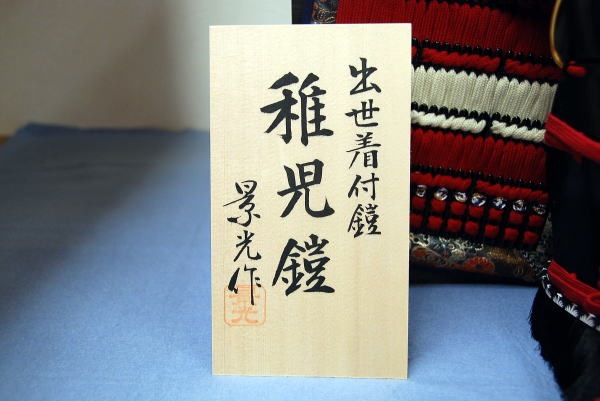 出世着付鎧
稚児鎧
景光作
景光